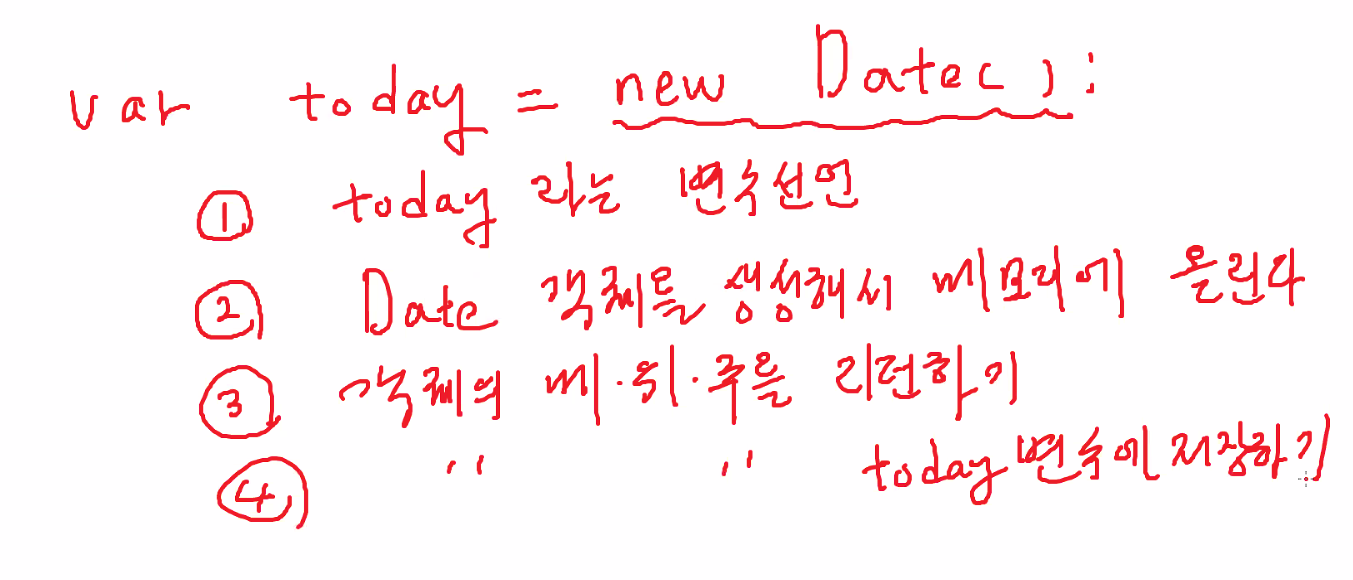 var today = new Date();
① today 라는 변수선언
② Date 객체를 생성해서 메모리에 올린다
③ 객체의 메·위·주를 리턴하기
④ " " today 변수에 저장하기